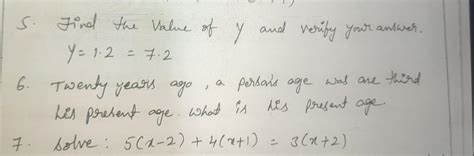 5. Find the Value of Y and verify your answer.
Y = 1.2 = 7.2
6. Twenty years ago, a person's age was one third
his present age. What is his present age.
7. Solve: 5(x-2) + 4(x+1) = 3(x+2)